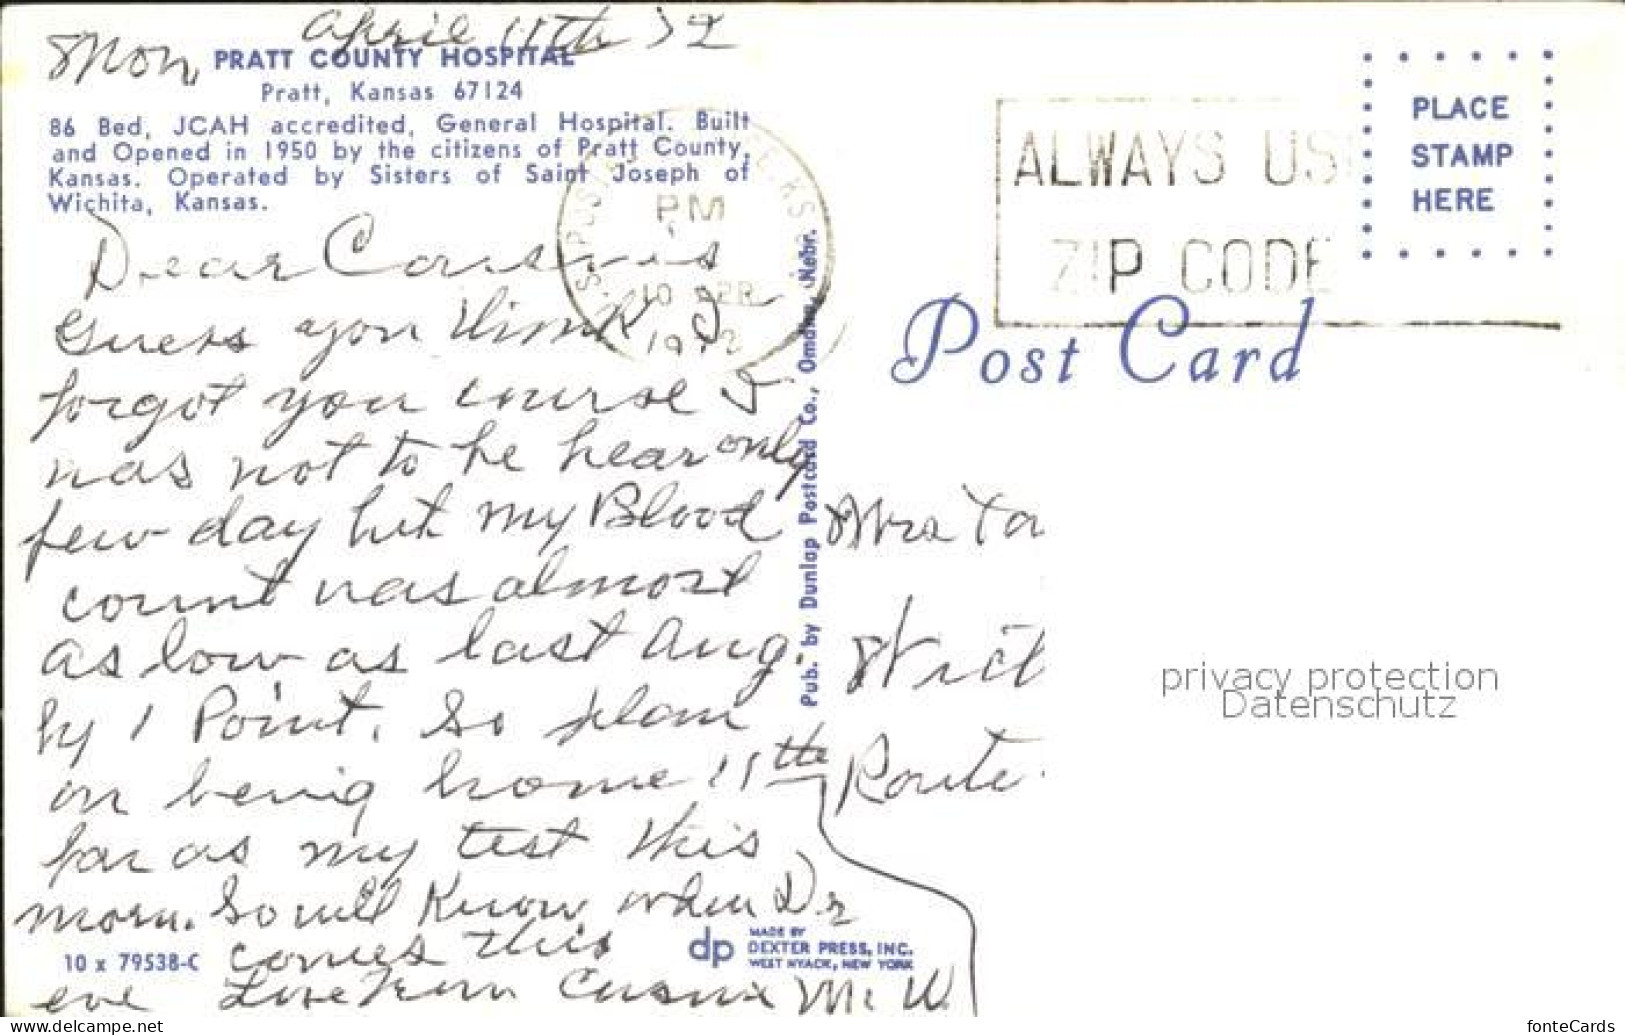 April 11th 72
Mon,
PRATT COUNTY HOSPITAL
Pratt, Kansas 67124
86 Bed, JCAH accredited, General Hospital. Built
and Opened in 1950 by the citizens of Pratt County,
Kansas. Operated by Sisters of Saint Joseph of
Wichita, Kansas.
Dear Cousins
Guess you think I
forgot you course I
was not to be hear only
few day but my Blood
count was almost
as low as last Aug.
by 1 Point. So plan
on being home 11th
far as my test this
morn. So will know when Dr
comes this
eve Love from Cousin M. W.
10 x 79538-C
dp
MADE BY
DEXTER PRESS, INC.
WEST NYACK, NEW YORK
Pub. by Dunlap Postcard Co., Omaha, Nebr.
PM
10 APR
1972
ALWAYS US
ZIP CODE
PLACE
STAMP
HERE
Post Card
Mrs
Route
privacy protection
Datenschutz
www.delcampe.net
fonteCards